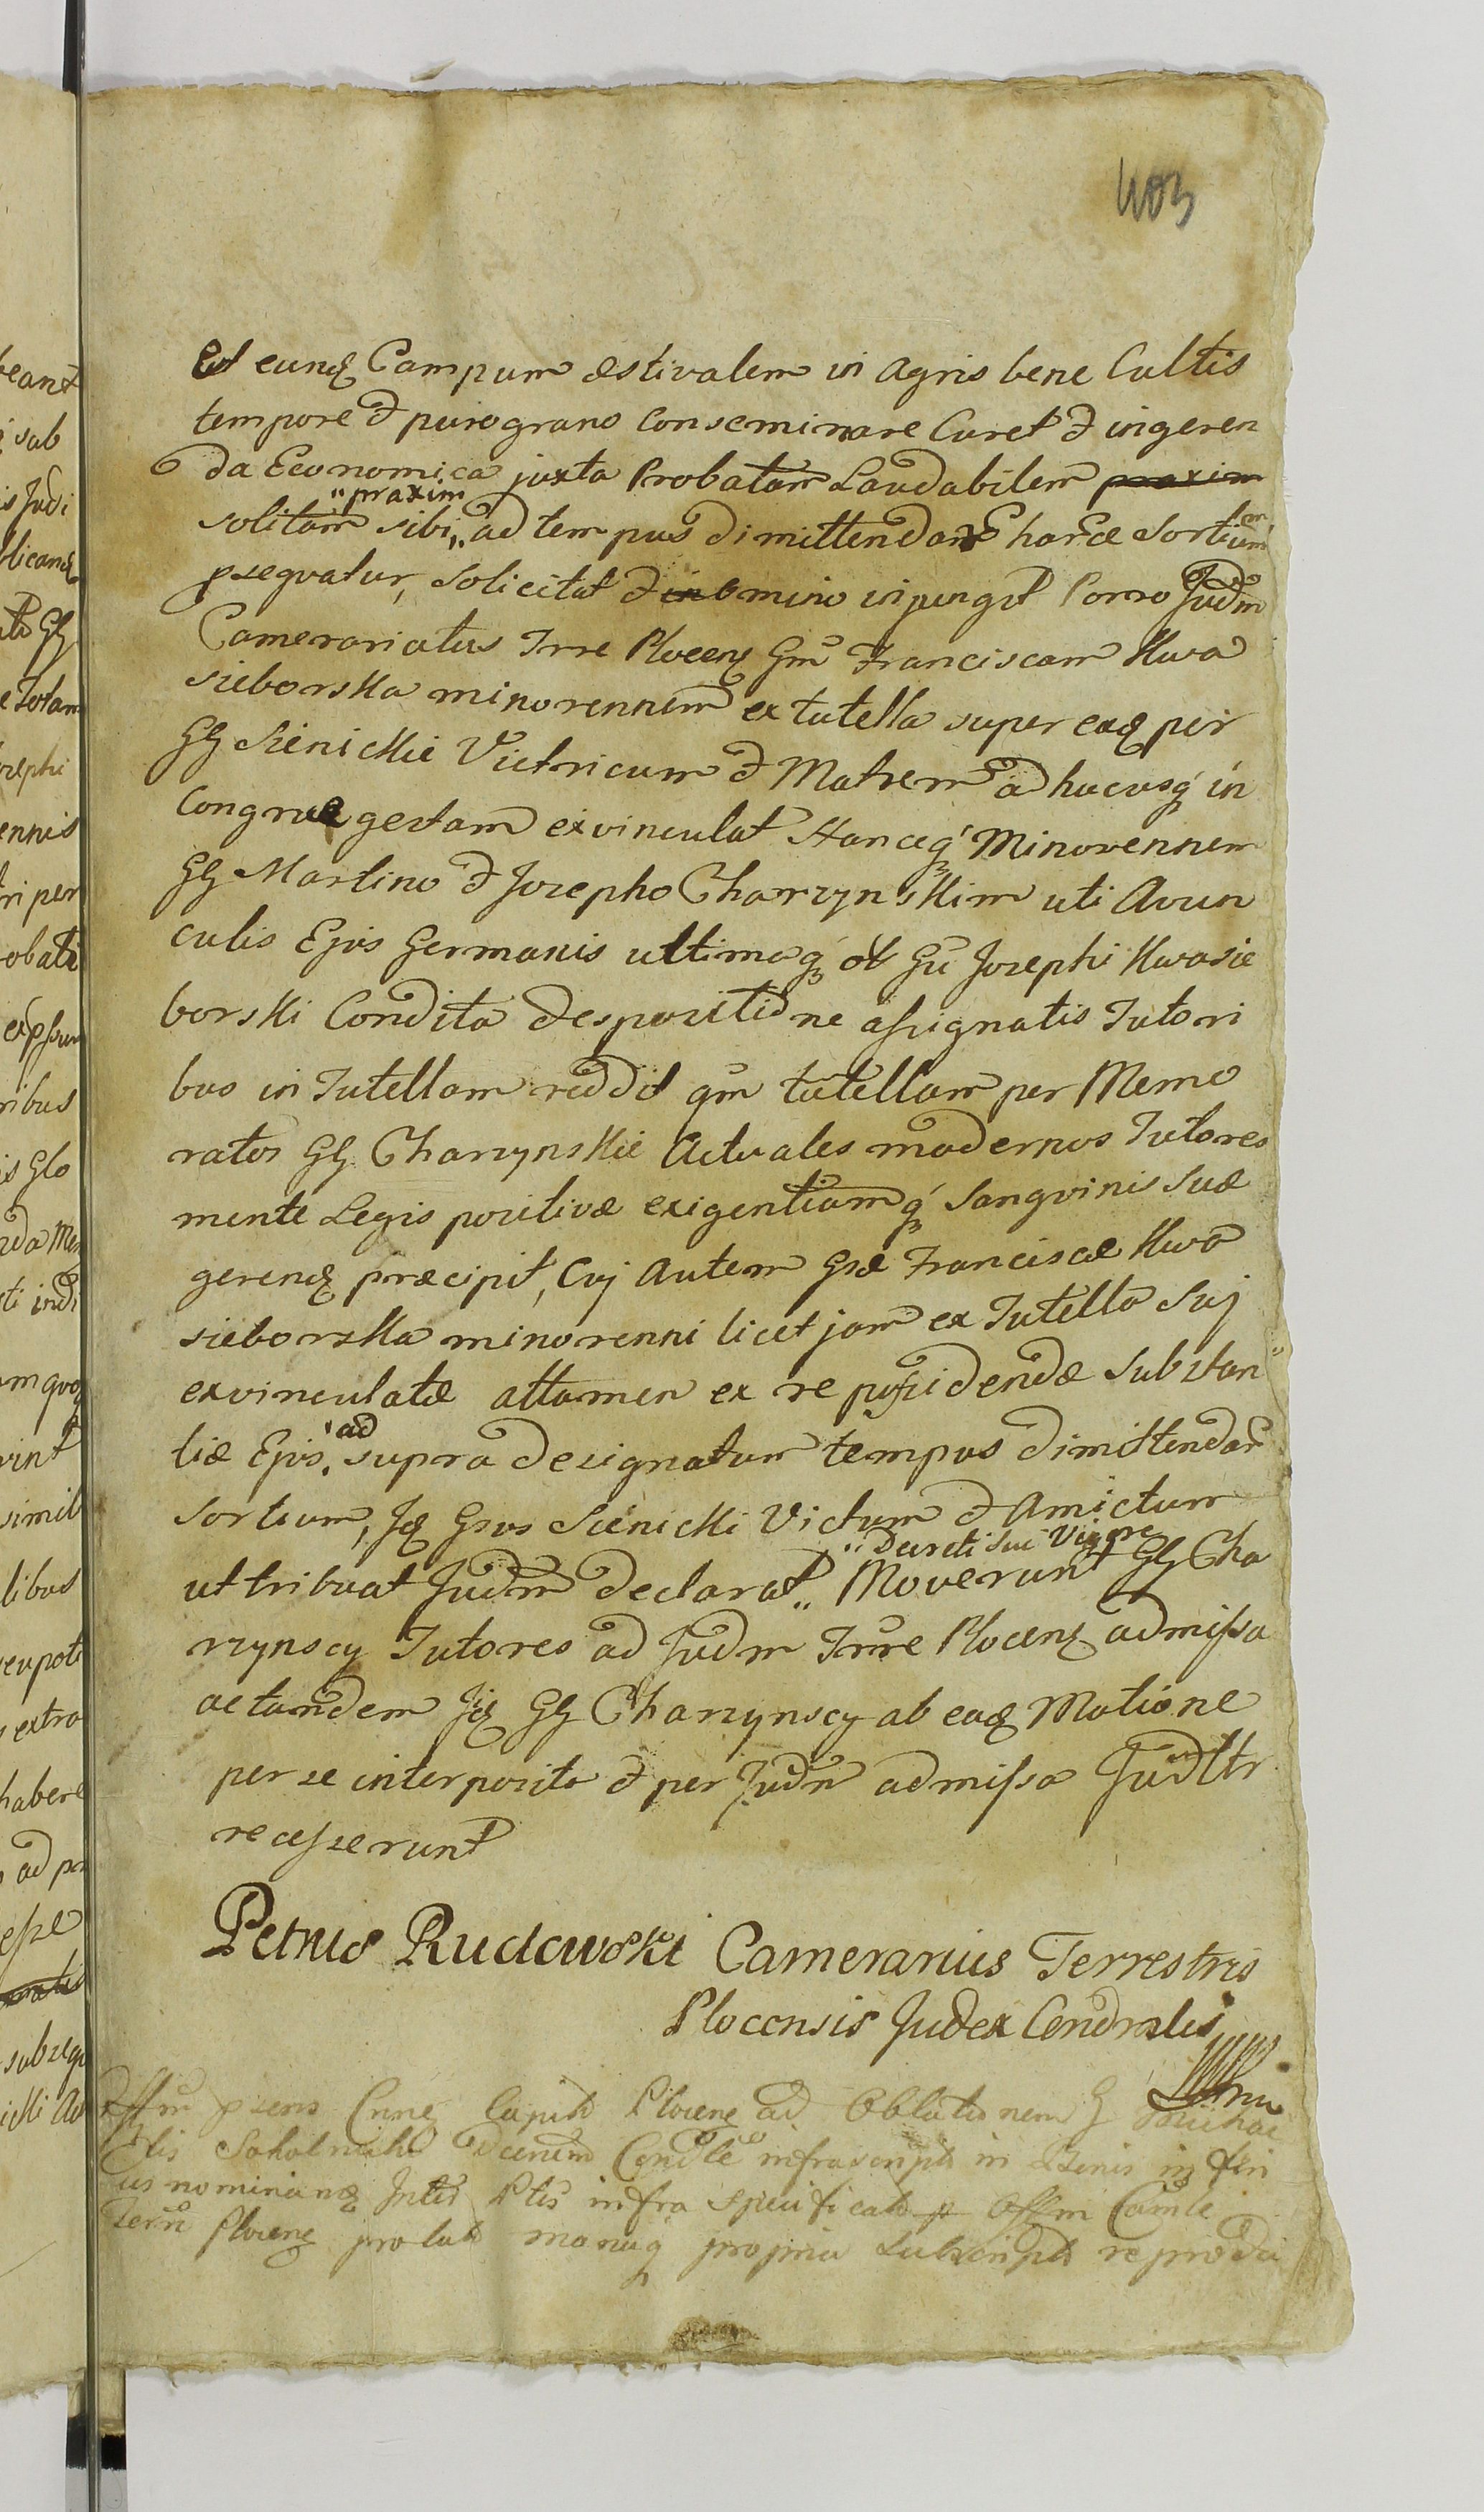 403
Et eunq Campum æstivalem in agris bene Cultis
tempore & puro grano Conseminare Curet & ingeren
da Economica juxta Probatam Laudabilem praxim
solitam sibi „praxim„ ad tempus dimittendar harce Sortium
psequatur, Solicitat & omnino injungit Porro Judm
Camerariatus Trre Plocenq Gm Franciscam Kwa
sieborska minorennem ex tutella super eaq per
GG Sienickie Victricum & Matrem ad hucusq in
congrue gestam exvinculat Hanceq Minorennem
GG Martino & Josepho Charzynskim uti Avun
culis Ejus Germanis ultimaq ol Gu Josephi Kwasie
borski Condita despositione assignatis Tutori
bus in Tutellam reddit qm tutellam per Memo
ratos GG Charzynskie Actuales modernos Tutores
mente Legis positivæ exigentiamq Sangvinis Suæ
gerenq præcipit, Cuj Autem Gsæ Franciscæ Kwa
sieborska minorenni licet jam ex Tutella Suj
exvinculatæ attamen ex re possidendæ Substan
tiæ Ejus ad supra designatum tempus dimittendar
Sortium, Jq Gsus Sienicki Victum & Amictum
ut tribuat Judm declarat „Decreti sui Vigore„ Moverunt GG Cha
rzynscy Tutores ad Judm Trre Plocenq admissa
ac tandem Jiq GG Charzynscy ab eaq Motione
per se interposita & per Judm admissa Judltr
recesserunt
Petrus Rudowski Camerarius Terrestris
Plocensis Judex Condralis
Offm psens Cnne Capitl Plocenq ad Oblationem G Michae
lis Sokolnicki Decretum Condle infrascript in Ttenis inferi
us nominanq Inter Ptes infra specificat p Offm Camle
Terre Plocenq prolat manuq propria Subscript reproduc